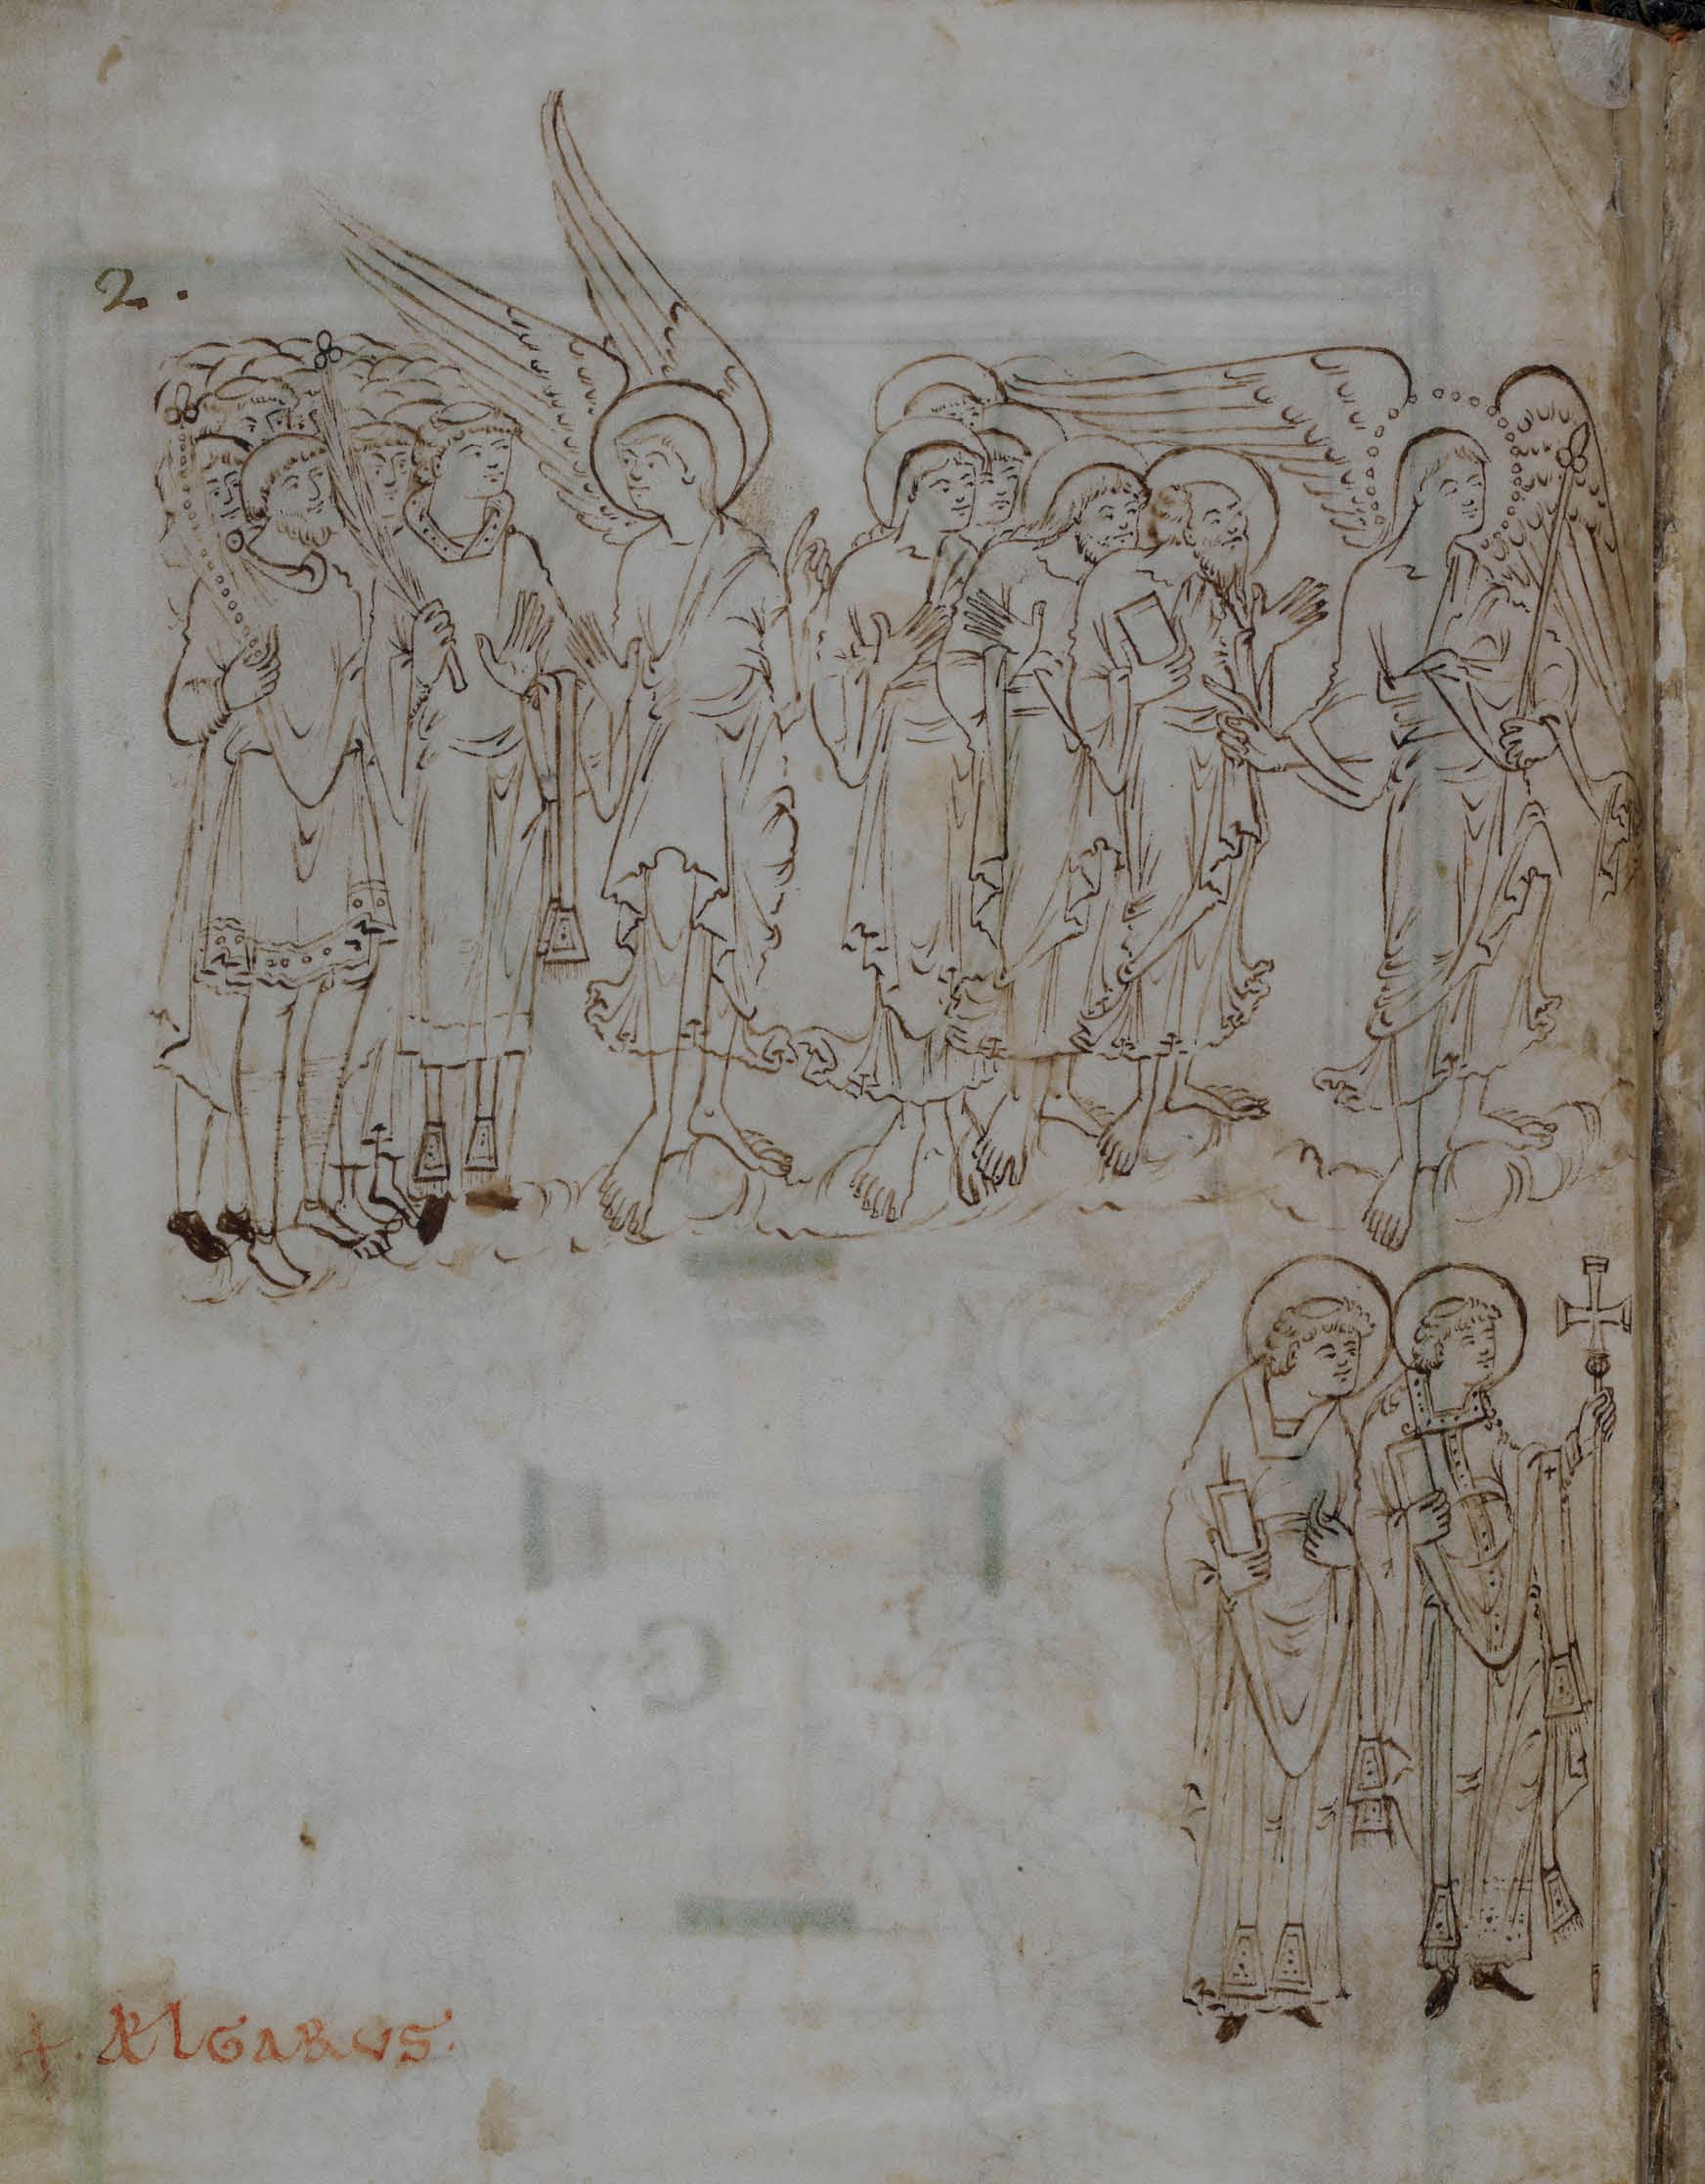 2.
+ ÆLGARVS.